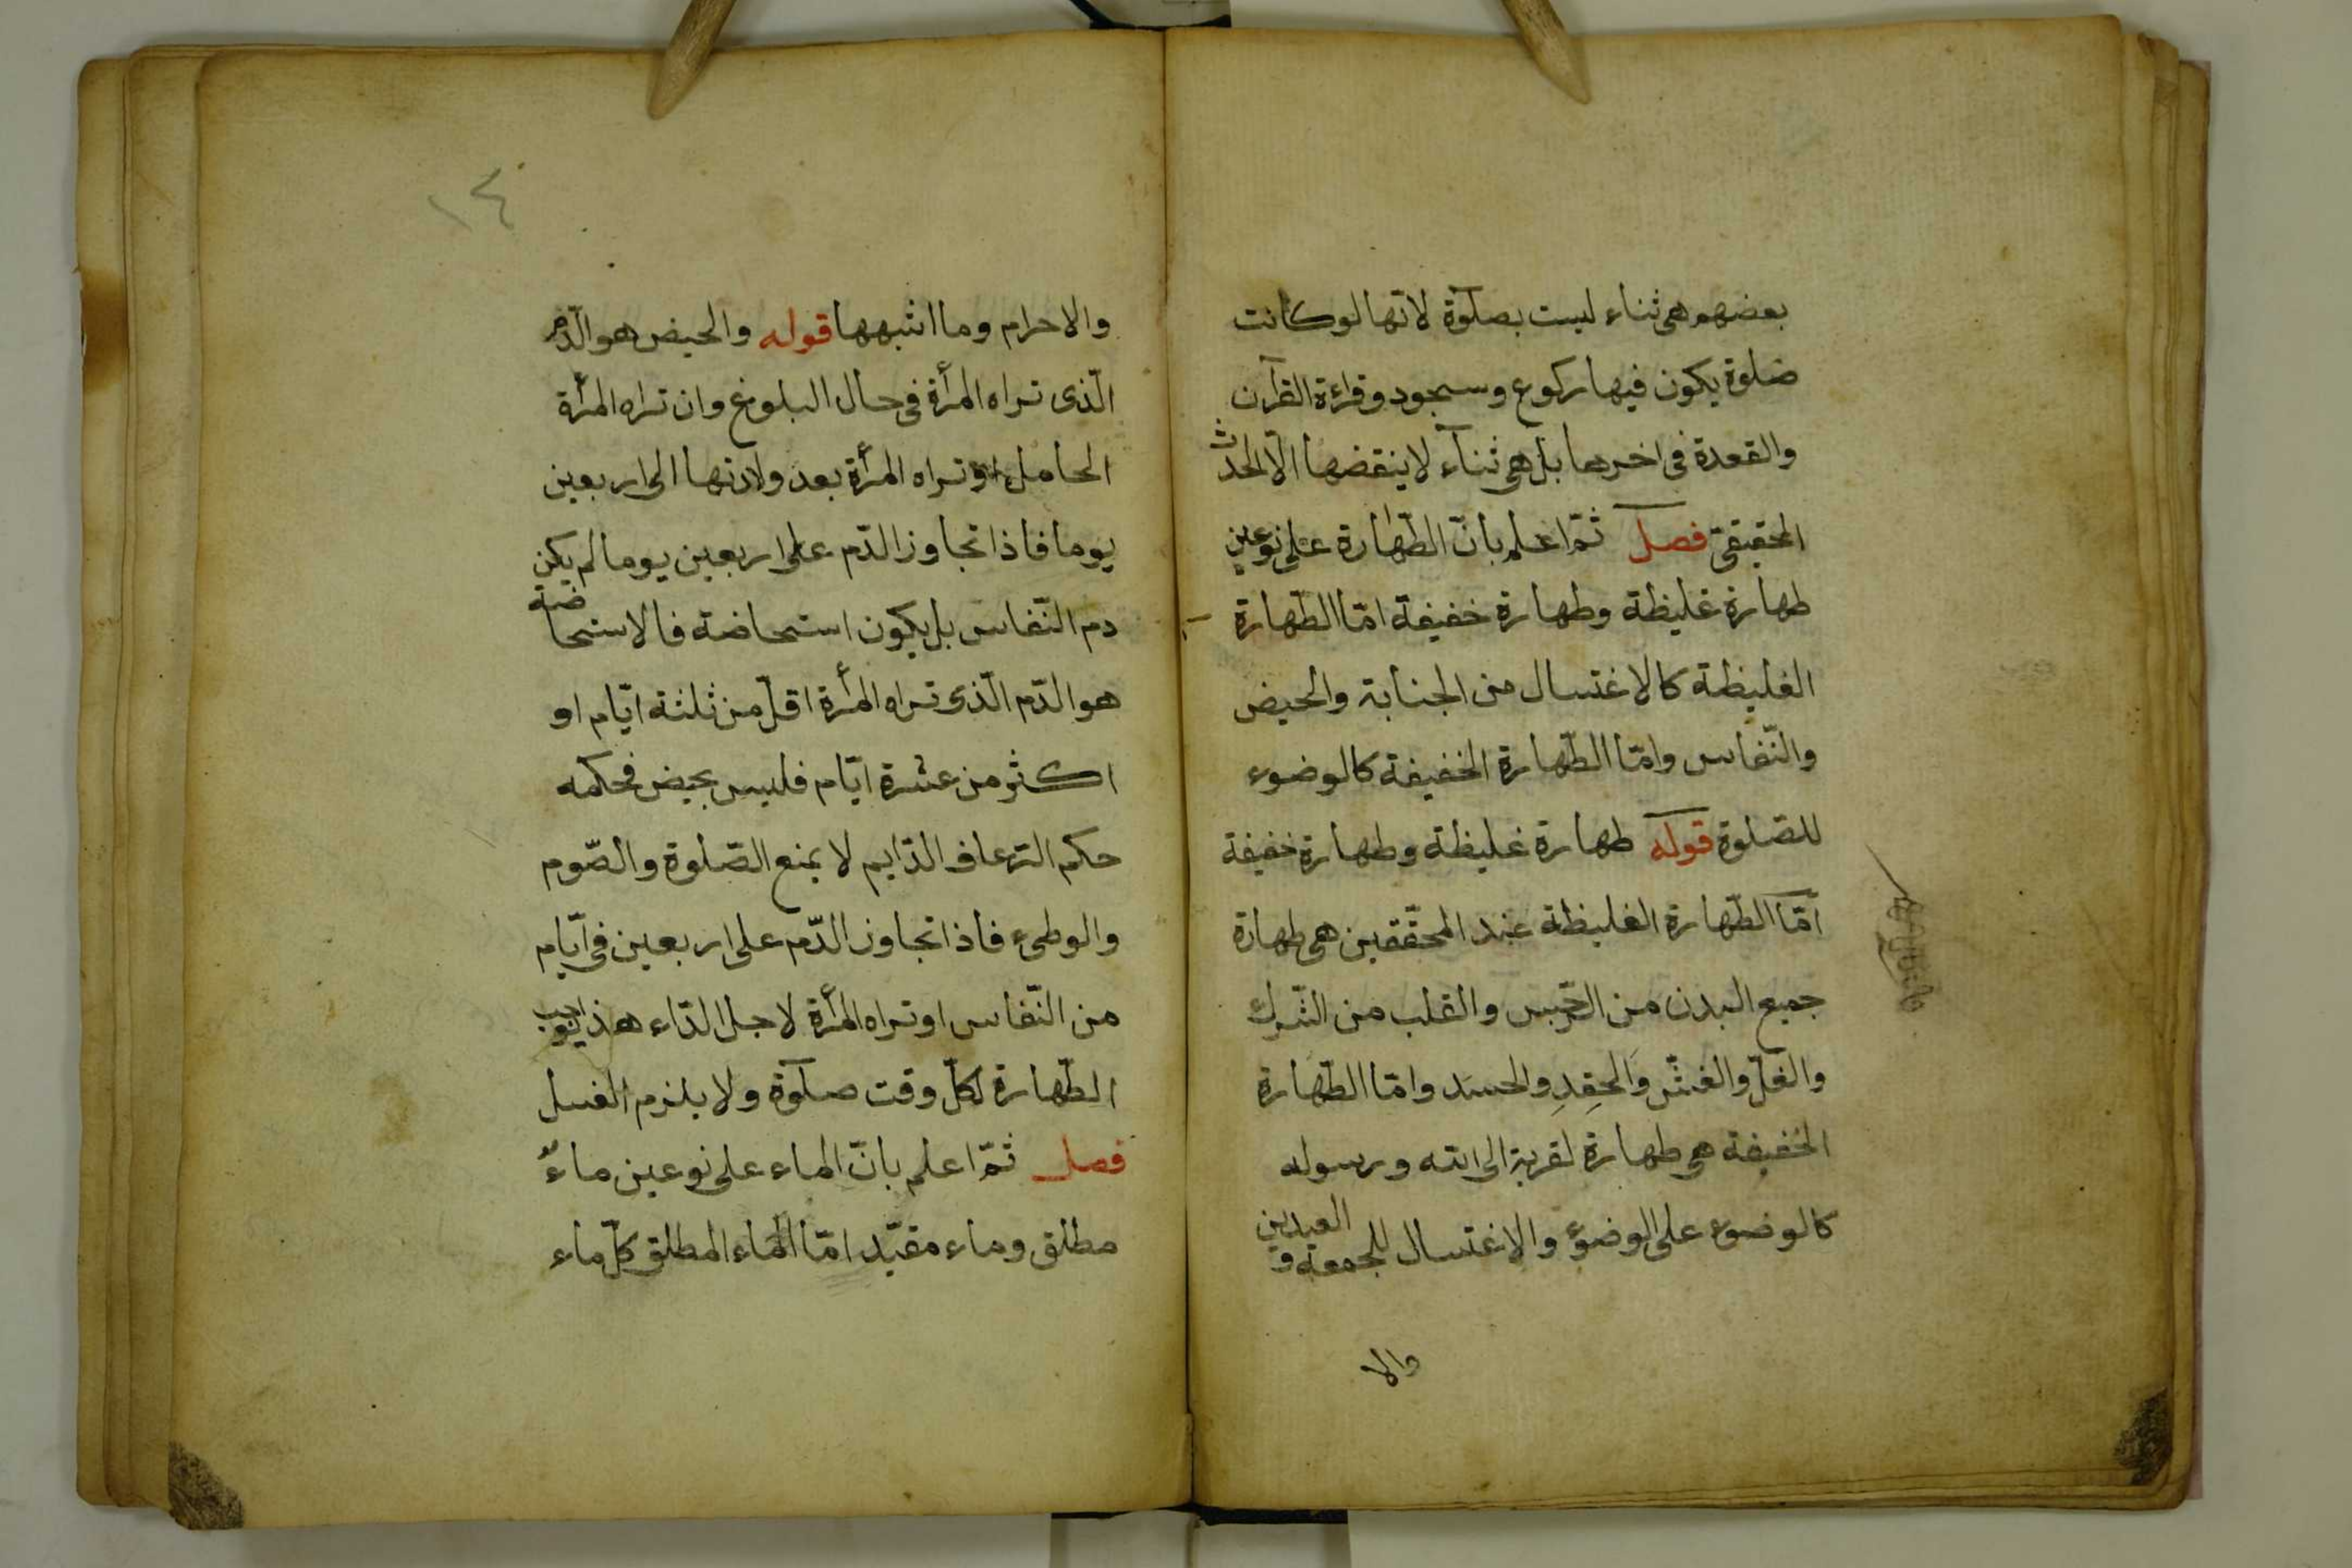 بعضهم هى ثناء ليست بصلوة لانّها لو كانت
صلوة يكون فيها ركوع وسجود وقراءة القرآن
والقعدة فى اخرها بل هى ثناء لا ينقضها الّا الحدث
الحقيقىّ فصل ثمّ اعلم بانّ الطّهارة على نوعين
طهارة غليظة وطهارة خفيفة امّا الطّهارة
الغليظة كالاغتسال من الجنابة والحيض
والنّفاس وامّا الطّهارة الخفيفة كالوضوء
للصّلوة قوله طهارة غليظة وطهارة خفيفة
امّا الطّهارة الغليظة عند المحقّقين هى طهارة
جميع البدن من و القلب من الشّرك
والغلّ والغشّ والحِقدِ والحسَد وامّا الطّهارة
الخفيفة هى طهارة لقربة الى الله ورسوله
كالوضوء على الوضوء والاغتسال للجمعة و العيدين
والا
١٤
والاحرام وما اشبهها قوله والحيض هو الدّم
الّذى تراه المرأة فى حال البلوغ وان تراه المرأة
الحامل او تراه المرأة بعد ولادتها الى اربعين
يوما فاذا تجاوز الدّم على اربعين يوما لم يكن
دم النّفاس بل يكون استحاضة فالاستحاضة
هو الدّم الّذى تراه المرأة اقلّ من ثلثة ايّام او
اكثر من عشرة ايّام فليس بحيض فحكمه
حكم الرّعاف الدّايم لا يمنع الصّلوة والصّوم
والوطىء فاذا تجاوز الدّم على اربعين فى ايّام
من النّفاس او تراه المرأة لاجل الدّاء هذا يوجب
الطّهارة لكلّ وقت صلوة ولا يلزم الغسل
فصل ثمّ اعلم بانّ الماء على نوعين ماءٌ
مطلق وماء مقيّد امّا الماء المطلق كلّ ماء